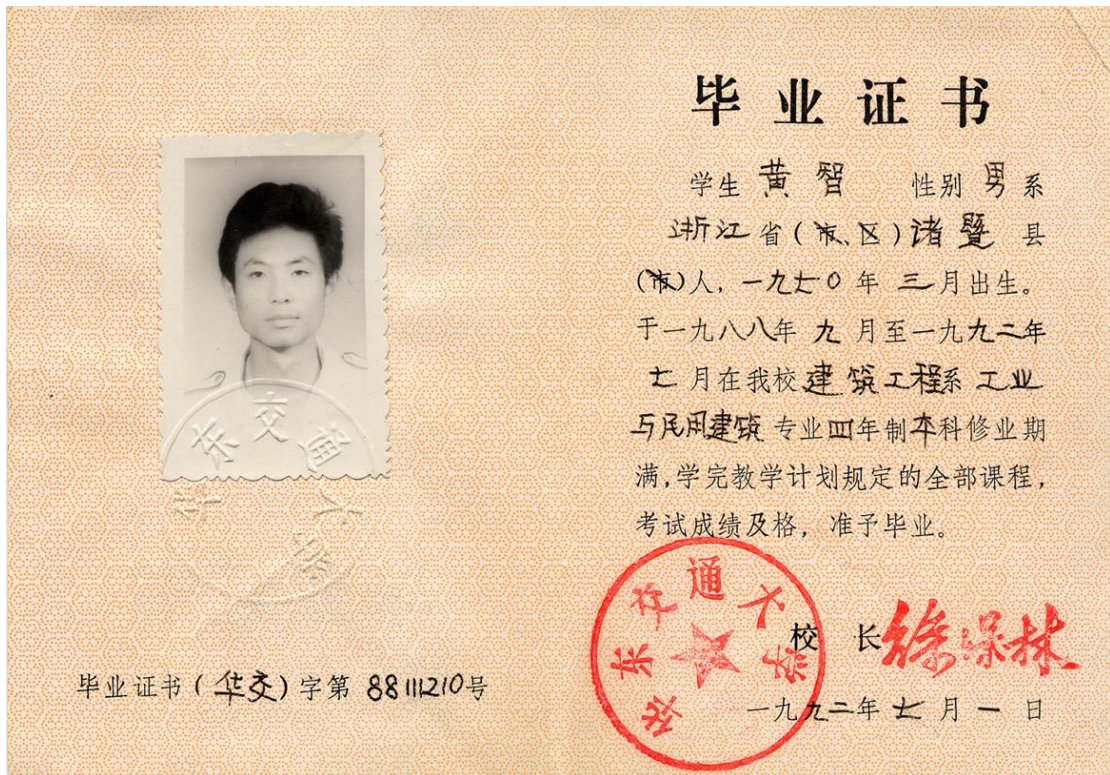 毕业证书
学生 黄智 性别 男 系
浙江 省(市、区)诸暨 县
(市)人,一九七0年 三月出生。
于一九八八年 九 月至一九九二年
七 月在我校建筑工程系 工业
与民用建筑 专业四年制本科修业期
满,学完教学计划规定的全部课程,
考试成绩及格,准予毕业。
校 长 徐保林
一九九二年 七 月 一 日
华东交通大学
华东交通大学
毕业证书(华交)字第 88111210号